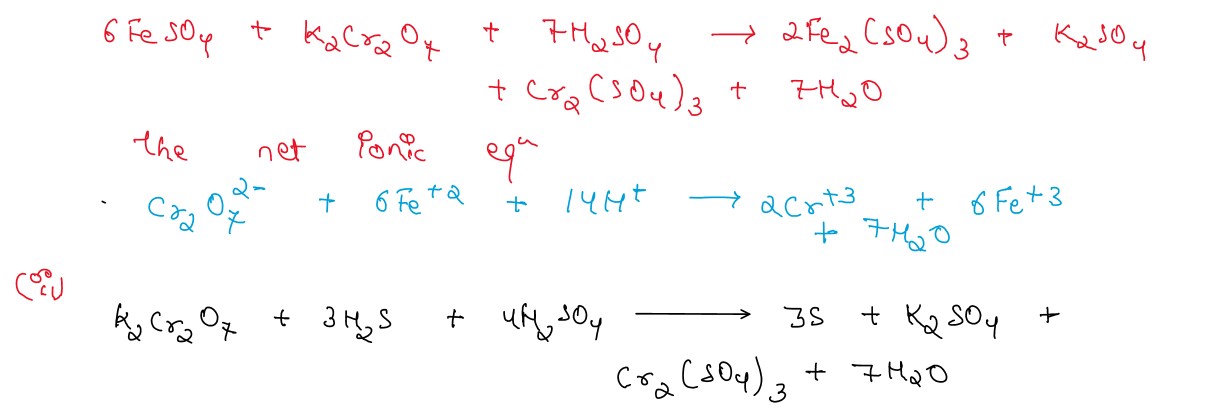 6FeSO₄ + K₂Cr₂O₇ + 7H₂SO₄ → 2Fe₂(SO₄)₃ + K₂SO₄
+ Cr₂(SO₄)₃ + 7H₂O
the net ionic eqⁿ
Cr₂O₇²⁻ + 6Fe⁺² + 14H⁺ → 2Cr⁺³ + 6Fe⁺³
+ 7H₂O
(ii)
K₂Cr₂O₇ + 3H₂S + 4H₂SO₄ → 3S + K₂SO₄ +
Cr₂(SO₄)₃ + 7H₂O